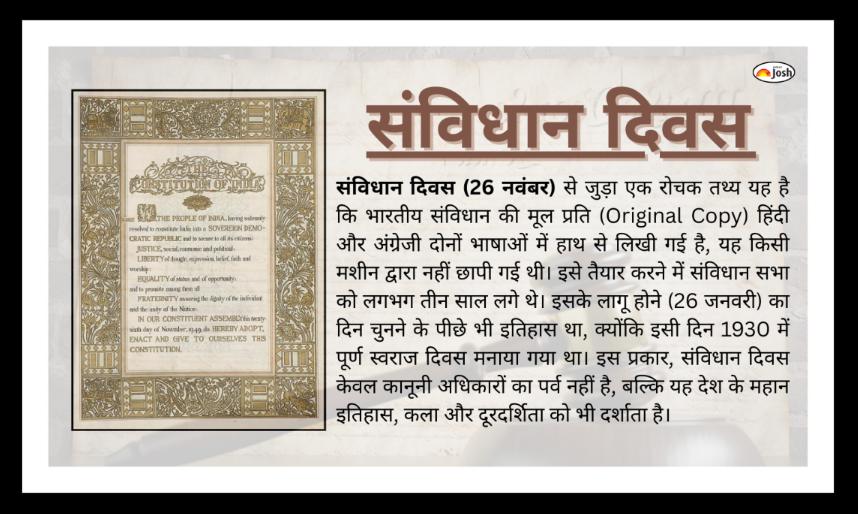 Josh
संविधान दिवस
संविधान दिवस (26 नवंबर) से जुड़ा एक रोचक तथ्य यह है
कि भारतीय संविधान की मूल प्रति (Original Copy) हिंदी
और अंग्रेजी दोनों भाषाओं में हाथ से लिखी गई है, यह किसी
मशीन द्वारा नहीं छापी गई थी। इसे तैयार करने में संविधान सभा
को लगभग तीन साल लगे थे। इसके लागू होने (26 जनवरी) का
दिन चुनने के पीछे भी इतिहास था, क्योंकि इसी दिन 1930 में
पूर्ण स्वराज दिवस मनाया गया था। इस प्रकार, संविधान दिवस
केवल कानूनी अधिकारों का पर्व नहीं है, बल्कि यह देश के महान
इतिहास, कला और दूरदर्शिता को भी दर्शाता है।
THE
CONSTITUTION OF INDIA
WE, THE PEOPLE OF INDIA, having solemnly
resolved to constitute India into a SOVEREIGN DEMO-
CRATIC REPUBLIC and to secure to all its citizens:
JUSTICE, social, economic and political;
LIBERTY of thought, expression, belief, faith and
worship;
EQUALITY of status and of opportunity;
and to promote among them all
FRATERNITY assuring the dignity of the individual
and the unity of the Nation;
IN OUR CONSTITUENT ASSEMBLY this twenty-
sixth day of November, 1949, do HEREBY ADOPT,
ENACT AND GIVE TO OURSELVES THIS
CONSTITUTION.